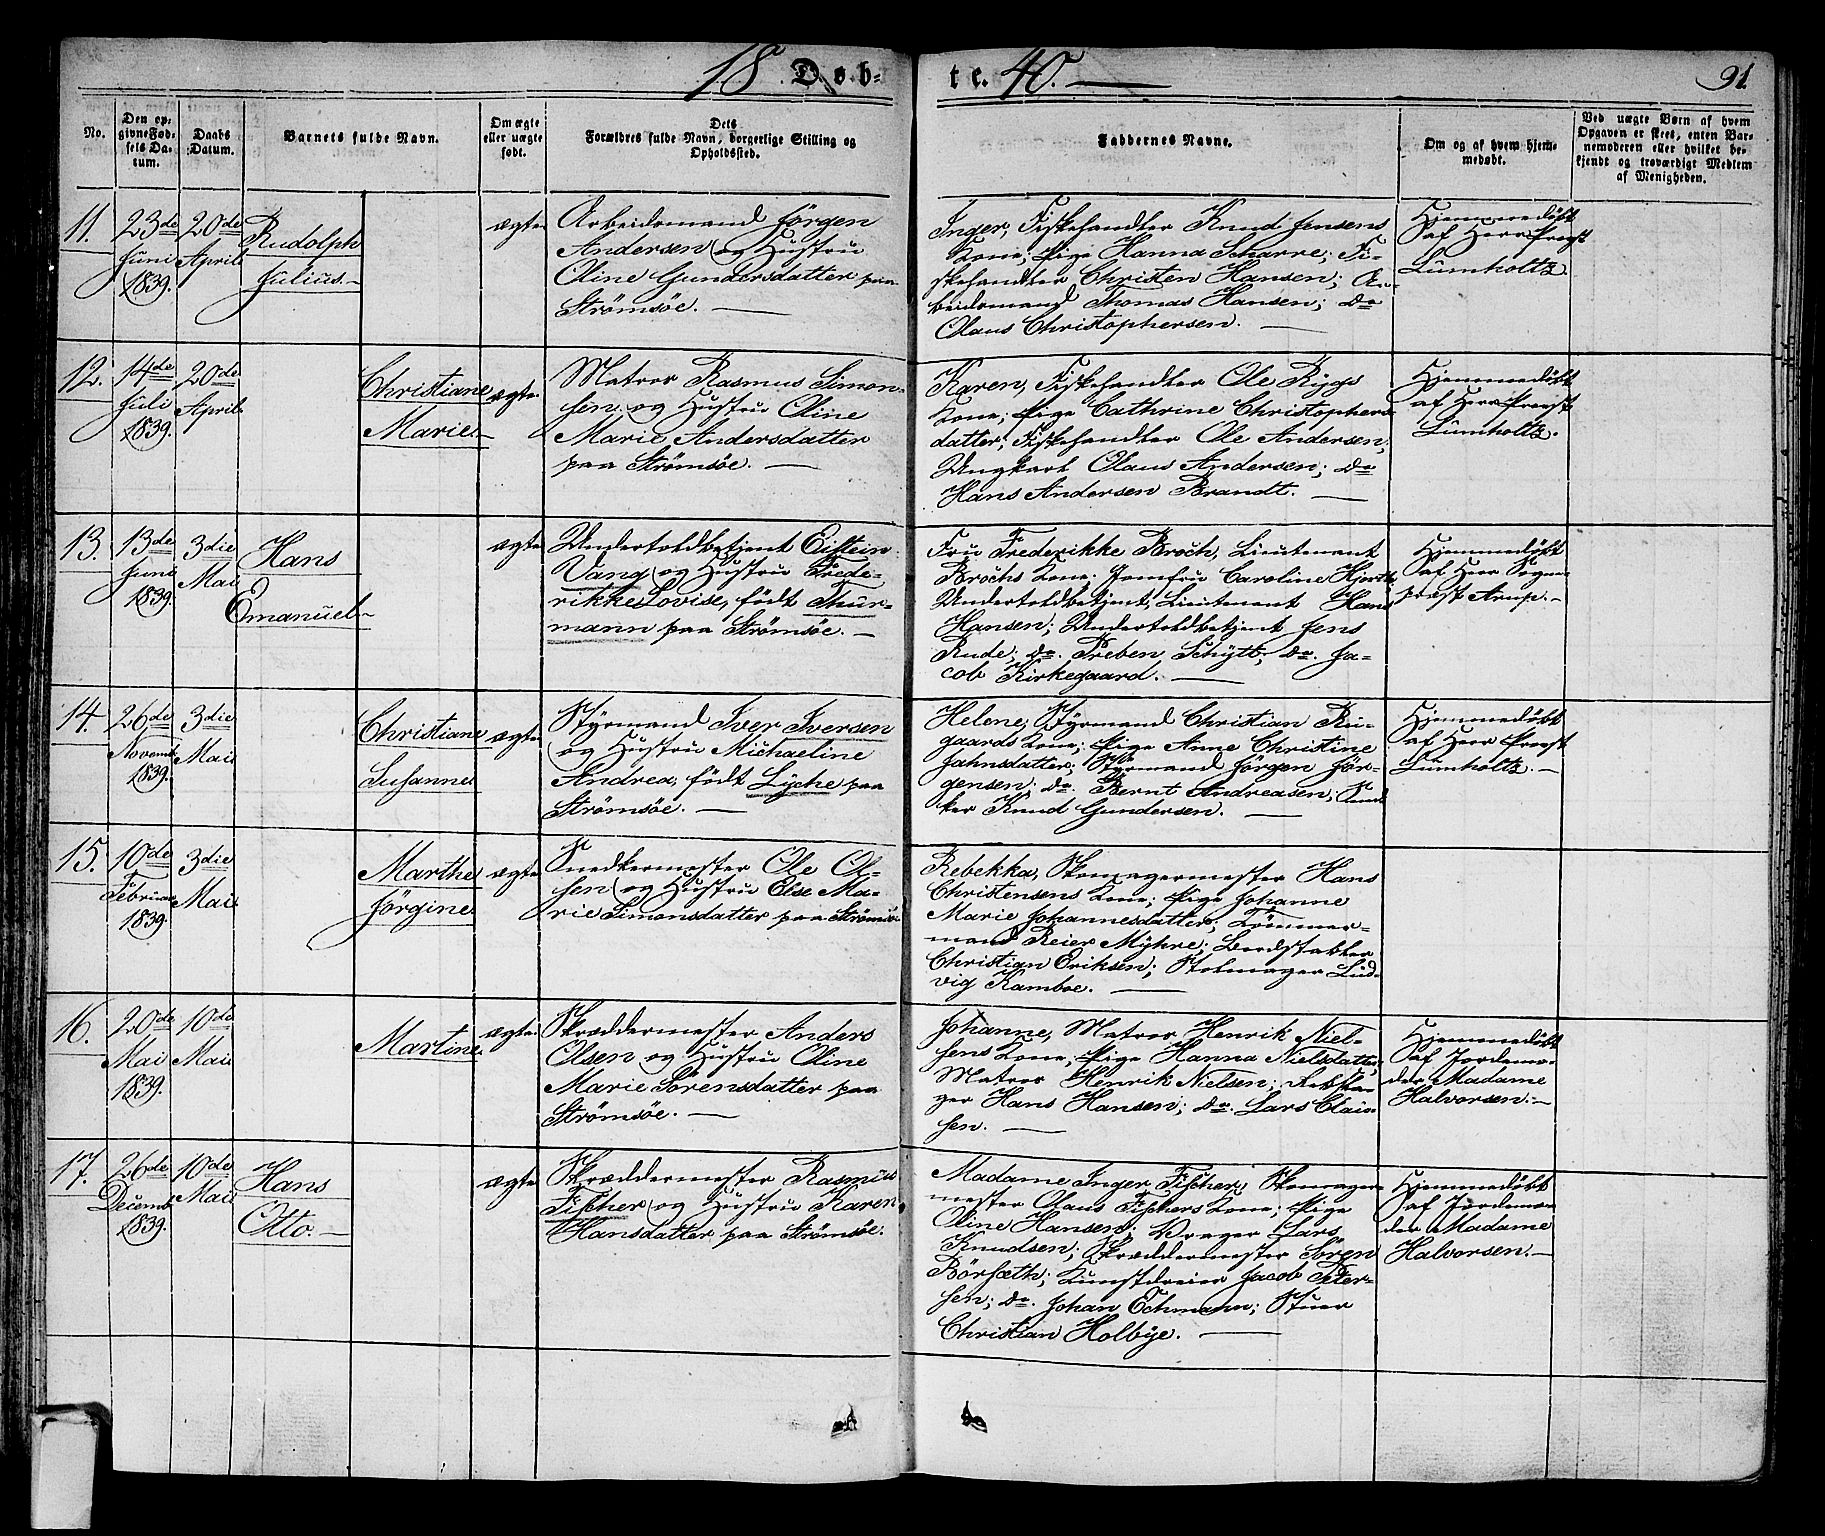 18 Døb-
te. 40.
91.
No.
Den op-
givne Fød-
sels Da-
tum.
Daabs
Datum.
Barnets fulde Navn.
Om ægte
eller uægte
født.
Dets
Forældres fulde Navn, borgerlige Stilling og
Opholdssted.
Faddernes Navne.
Om og af hvem hjem-
medøbt.
Ved uægte Børn af hvem
Opgaven er skeet, enten Bar-
nemoderen eller hvilket be-
kjendt og troværdigt Medlem
af Menigheden.
11.
23de
Juni
1839.
20de
April
Rudolph
Julius.
ægte
Arbeidsmand Jörgen
Andersen og Hustru
Oline Gundersdatter paa
Strömsöe.
Inger, Fiskehandler Knud Jensens
Kone; Pige Hanna Scharre; Fi-
skehandler Christen Hansen; Ar-
beidsmand Thomas Hansen; do
Olaus Christophersen.
Hjemmedöbt
af Herr Præst
Lumholtz.
12.
14de
Juli
1839.
20de
April
Christiane
Marie.
ægte
Matros Rasmus Simon-
sen og Hustru Oline
Marie Andersdatter
paa Strömsöe.
Karen, Fiskehandler Ole Riggs
Kone; Pige Cathrine Christophers
datter; Fiskehandler Ole Andersen;
Ungkarl Olaus Andersen; do
Hans Andersen Brandt.
Hjemmedöbt
af Herr Præst
Lumholtz.
13.
13de
Juni
1839.
3die
Mai
Hans
Emanuel
ægte
Undertoldbetjent Eistein
Vang og Hustru Frede-
rikke Lovise, födt Thur-
mann paa Strömsöe.
Fru Frederikke Broch, Lieutenant
Brochs Kone; Jomfru Caroline Hjorth,
Undertoldbetjent, Lieutenant Hans
Hansen; Undertoldbetjent Jens
Rude; do. Preben Schytt; do. Ja-
cob Kirkegaard.
Hjemmedöbt
af Herr Sogne-
præst Arup.
14.
26de
Novemb
1839.
3die
Mai
Christiane
Susanne
ægte
Styrmand Iver Iversen
og Hustru Michaeline
Andrea, födt Lyche paa
Strömsöe.
Helene, Styrmand Christian Ru-
gaards Kone; Pige Anne Christine
Jahnsdatter; Styrmand Jörgen Jör-
gensen; do. Bernt Andreasen;
Knud Gundersen.
Hjemmedöbt
af Herr Præst
Lumholtz.
15.
10de
Februar
1839.
3die
Mai
Marthe
Jörgine
ægte
Snedkermester Ole Ol-
sen og Hustru Else Ma-
rie Simonsdatter paa Strömsöe
Rebekka, Skomagermester Hans
Christensens Kone; Pige Johanne
Marie Johannesdatter; Tömmer-
mand Reier Myhre; Bordstabler
Christian Eriksen; Stolmager Lud-
vig Kamboe.
16.
20de
Mai
1839.
10de
Mai
Martine
ægte
Skræddermester Anders
Olsen og Hustru Oline
Marie Sörensdatter paa
Strömsöe.
Johanne, Matros Henrik Niel-
sens Kone; Pige Hanna Nielsdatter;
Matros Henrik Nielsen; Rebsla-
ger Hans Hansen; do. Lars Clau-
sen.
Hjemmedöbt
af Jordemo-
der Madame
Halvorsen.
17.
26de
Decemb
1839.
10de
Mai
Hans
Otto.
ægte
Skræddermester Rasmus
Fischer og Hustru Karen
Hansdatter paa Strömsöe.
Madame Inger Fischer, Skomager-
mester Olaus Fischers Kone; Pige
Oline Hansen; Drager Lars
Knudsen; Skræddermester Sören
Börsæth; Kunstdreier Jacob Peter-
sen; do. Johan Tchmann; Stuer
Christian Holbye.
Hjemmedöbt
af Jordemo-
der Madame
Halvorsen.